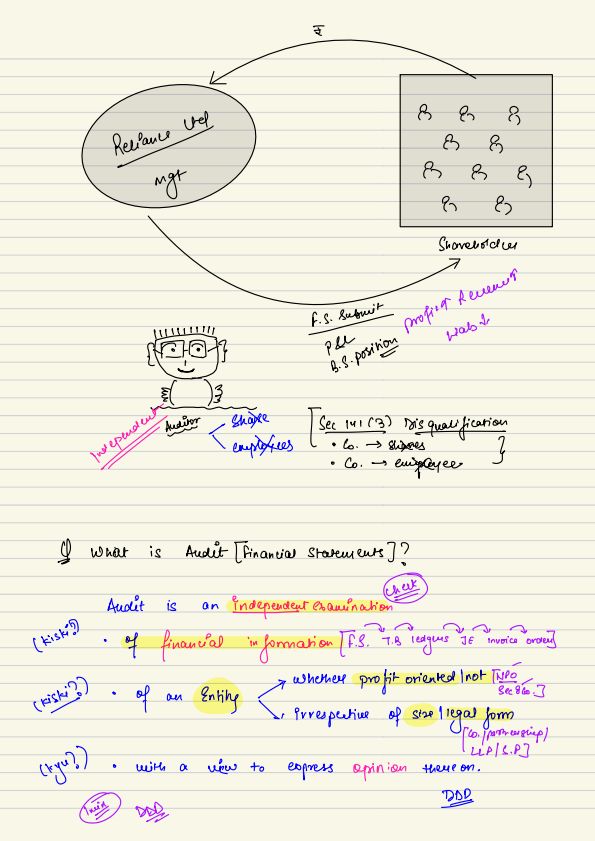 ₹
Reliance Ltd
mgt
Shareholders
F.S. Submit
P&L
B.S. position
Profit↑ Revenue↑
Liab↓
Independent
Auditor
Share
employees
[Sec 141(3) Disqualification
• Co. → shares
• Co. → employee
Q What is Audit [Financial Statements]?
Audit is an Independent examination
check
(Kiski?) • of financial information [F.S. T.B ledgers JE invoice orders]
(Kiski?) • of an Entity
→ whether profit oriented/not [NPO
Sec 8 Co.]
→ irrespective of size/legal form
[Co./partnership/
LLP/S.P]
(Kyu?) • with a view to express opinion thereon.
DDD
DDD